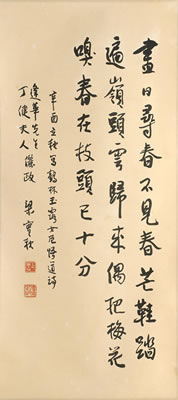 盡日尋春不見春芒鞋踏
遍嶺頭雲歸來偶把梅花
嗅春在枝頭已十分
辛酉立秋寫鶴林玉露女尼悟道詩
逢華先生
丁健夫人儷政
梁實秋